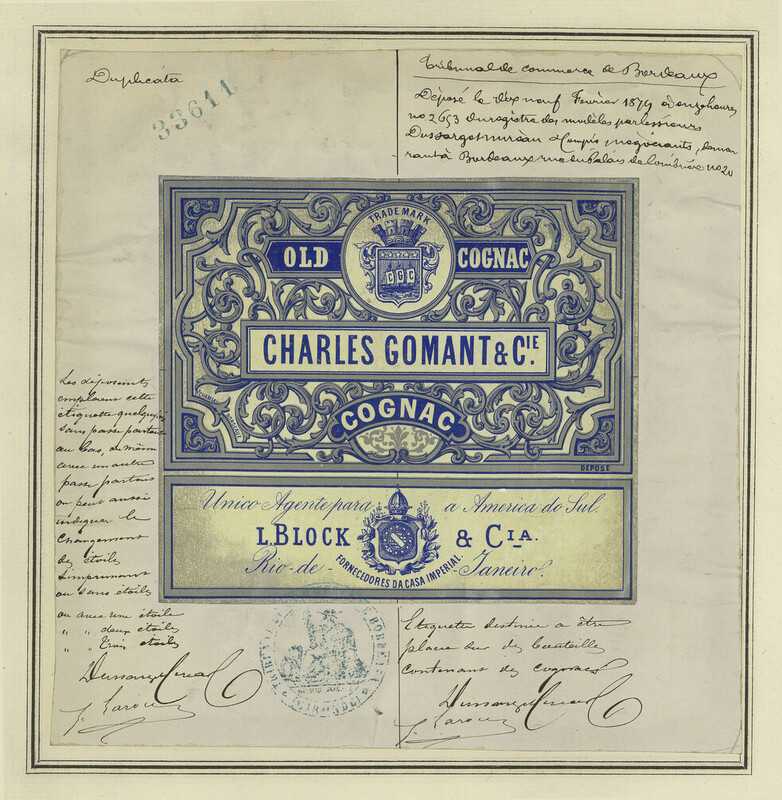 Duplicata
33611
Tribunal de commerce de Bordeaux
Déposé le dix neuf Février 1879 à onze heures
no 2653 du registre des modèles par les sieurs
négociants, demeu
rant à Bordeaux rue du Palais de l'ombrière no 20
TRADE MARK
OLD COGNAC
CGC
CHARLES GOMANT & CIE.
COGNAC
DÉPOSÉ
Unico Agente para a America do Sul.
L. BLOCK & CIA.
Rio-de-Janeiro.
FORNECEDORES DA CASA IMPERIAL
Les déposants
emploient cette
étiquette quelque
sans passe partout
au bas, ou même
avec un autre
passe partout
on peut aussi
indiquer le
changement
des étoiles
s'imprimant
ou sans étoiles
ou avec une étoile
" " deux étoiles
" " trois étoiles
GIRONDE
Etiquette destinée a être
placée sur des bouteilles
contenant des cognacs